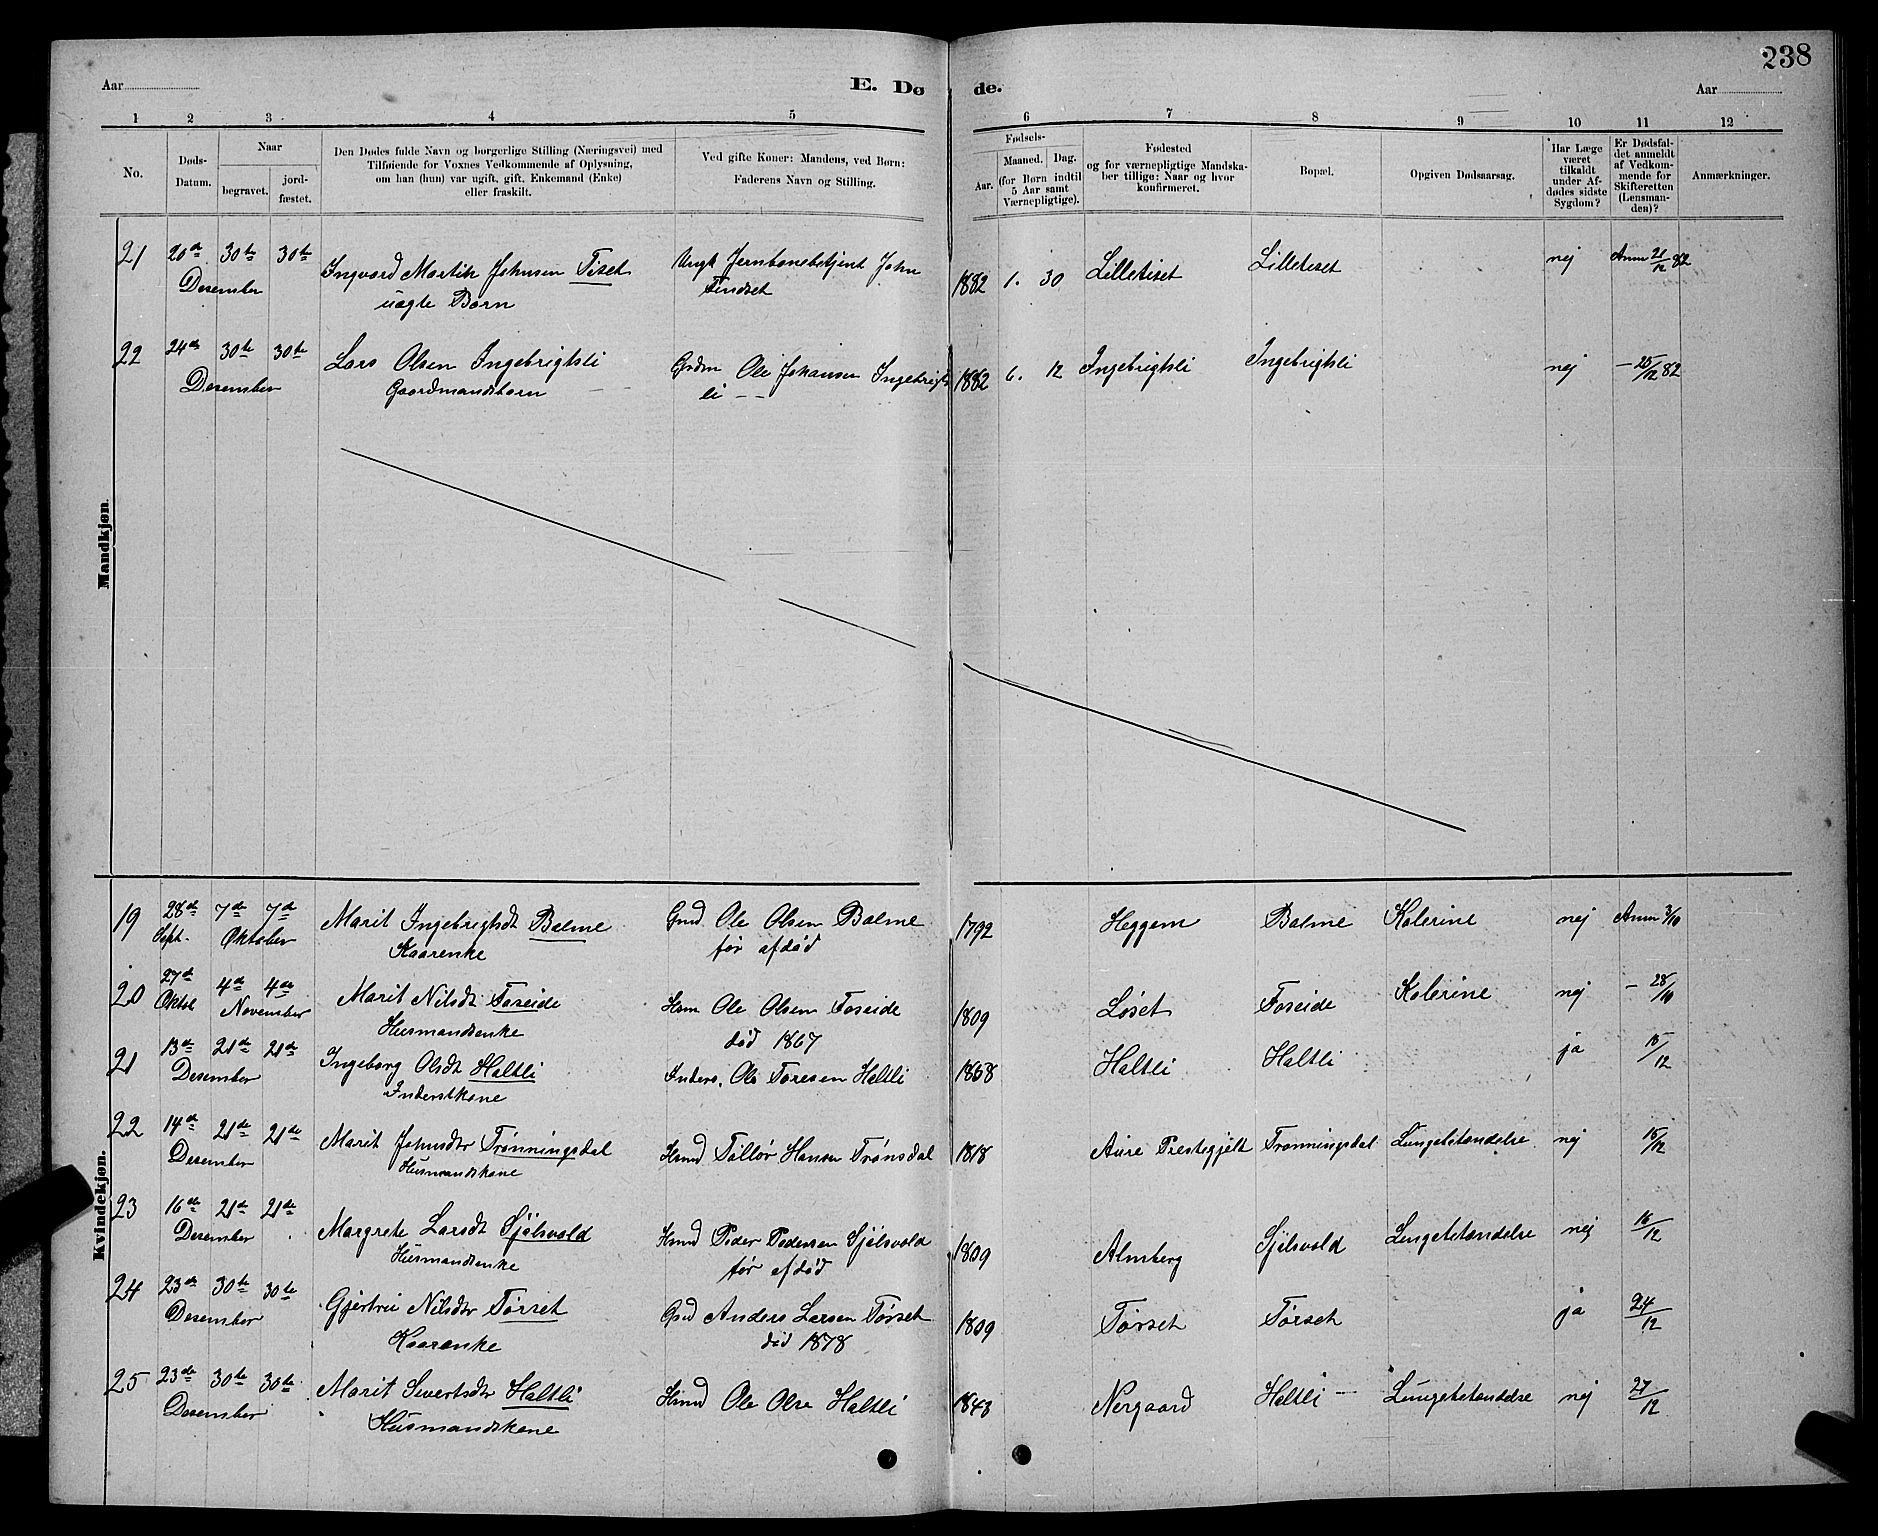 238
Aar
E. Dø
de.
Aar
1 2 3 4 5 6 7 8 9 10 11 12
No.
Døds-
Datum.
Naar
begravet.
jord-
fæstet.
Den Dødes fulde Navn og borgerlige Stilling (Næringsvei) med
Tilføiende for Voxnes Vedkommende af Oplysning,
om han (hun) var ugift, gift, Enkemand (Enke)
eller fraskilt.
Ved gifte Koner: Mandens, ved Børn:
Faderens Navn og Stilling.
Fødsels-
Aar.
Maaned. Dag.
(for Børn indtil
5 Aar samt
Værnepligtige).
Fødested
og for værnepligtige Mandska-
ber tillige: Naar og hvor
konfirmeret.
Bopæl.
Opgiven Dødsaarsag.
Har Læge
været
tilkaldt
under Af-
dødes sidste
Sygdom?
Er Dødsfal-
det anmeldt
af Vedkom-
mende for
Skifteretten
(Lensman-
den)?
Anmærkninger.
Mandkjøn.
21 20de 30te 30te Ingvard Martin Johnsen Tiset Ungk Jernbanebetjent John 1882 1. 30 Lilletiset Lilletiset nej Anm 21/12 82
Desember uægte Barn Tindset
22 24de 30te 30te Lars Olsen Ingebrigtsli Grdm Ole Johansen Ingebrigts 1882 6. 12 Ingebrigtsli Ingebrigtsli nej — 25/12 82
Desember Gaardmandsbarn li — —
Kvindekjøn.
19 28de 7de 7de Marit Ingebrigtsdt Balme Gmd Ole Olsen Balme 1792 Heggem Balme Kolerine nej Anm 3/10
Sept. Oktober Kaarenke før afdød
20 27de 4de 4de Marit Nilsdt Foseide Hsm Ole Olsen Foseide 1809 Løset Foseide Kolerine nej — 28/10
Oktob November Husmandsenke død 1867
21 13de 21de 21de Ingeborg Olsdt Haltli Inders. Ole Toresen Haltli 1858 Haltli Haltli ja 15/12
Desember Inderstkone
22 14de 21de 21de Marit Johnsdtr Trønningsdal Hsmd Tollør Hansen Trønsdal 1818 Aure Prestegjeld Trønningsdal Lungebetændelse nej 15/12
Desember Husmandskone
23 16de 21de 21de Margrete Larsdt Sjølsvold Hsmd Peder Pedersen Sjølsvold 1809 Almberg Sjølsvold Lungebetændelse nej 16/12
Desember Husmandsenke før afdød
24 23de 30te 30te Gjertru Nilsdtr Tørset Gmd Anders Larsen Tørset 1809 Tørset Tørset ja 24/12
Desember Kaarenke død 1878
25 23de 30te 30te Marit Sivertsdtr Haltli Hsmd Ole Olse Haltli 1843 Nergaard Haltli — Lungebetændelse nej 27/12
Desember Husmandskone